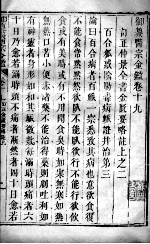 御纂醫宗金鑑卷十九
訂正仲景全書金匱要略註上之二
百合狐惑陰陽毒病脈證并治第三
論曰百合病者百脈一宗悉致其病也意欲食復
不能食常默然欲臥不能臥欲行不能行飲
食或有美時或有不用聞食臭時如寒無寒如
熱無熱口苦小便赤諸藥不能治得藥則劇吐利如
有神靈者身形如和其脈微數每溺時頭痛者六
十日乃愈若溺時頭不痛淅然者四十日愈若